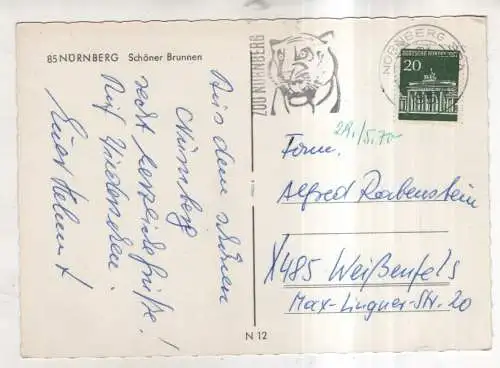 85 NÜRNBERG Schöner Brunnen
Aus dem schönen
Nürnberg
recht herzliche Grüße!
Auf Wiedersehen.
Euer Helmut
ZOO NÜRNBERG
NÜRNBERG
DEUTSCHE BUNDESPOST
20
29./5.70
Fam.
Alfred Rabenstein
X485 Weißenfels
Max-Lingner-Str. 20
N 12